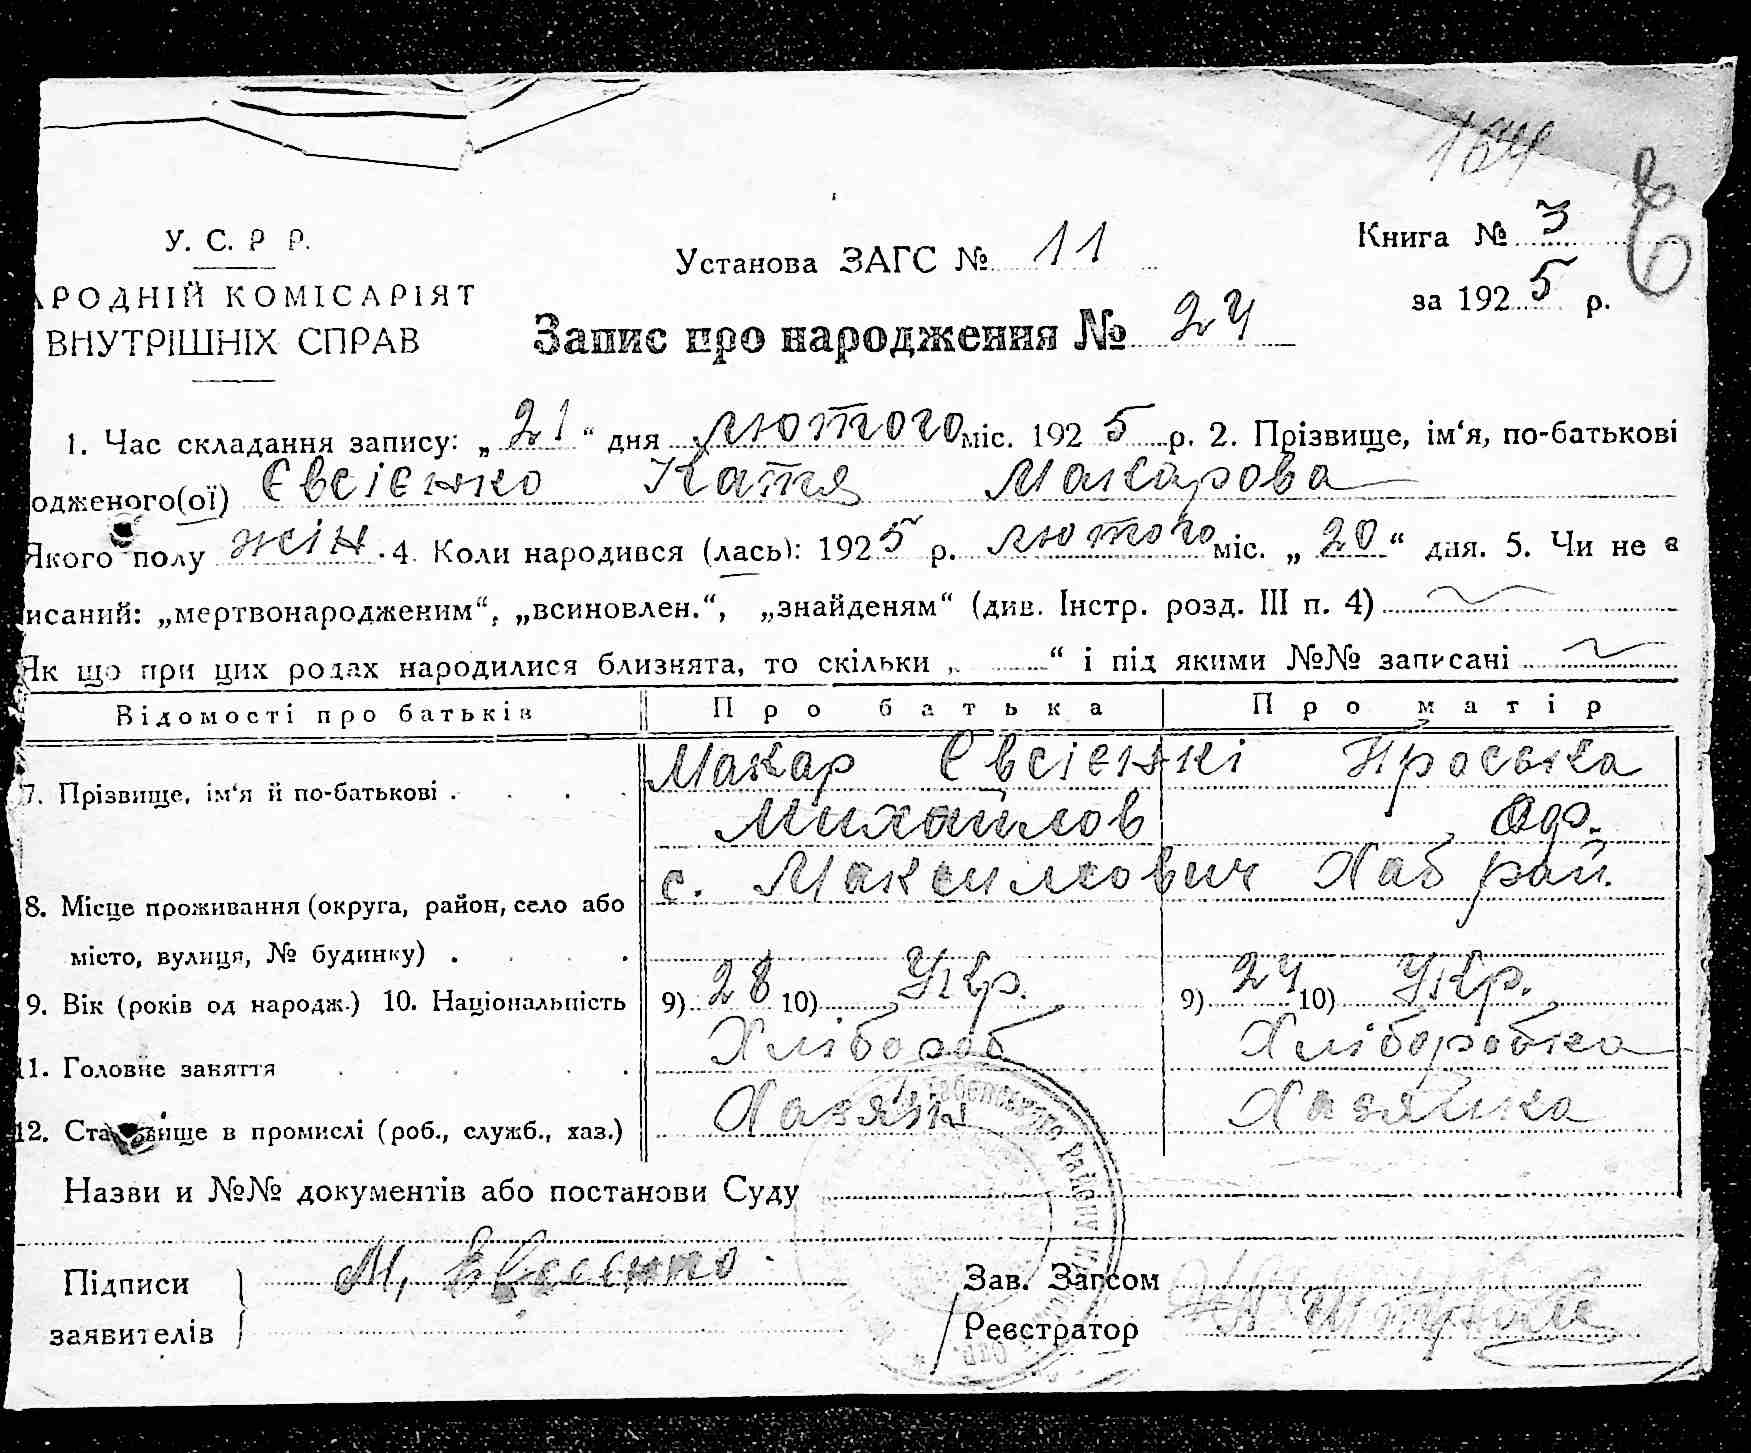 164
У. С. Р Р.
АРОДНІЙ КОМІСАРІЯТ
ВНУТРІШНІХ СПРАВ
Установа ЗАГС № 11
Книга № 3
за 1925 р.
Запис про народження № 24
1. Час складання запису: „21“ дня лютого міс. 1925 р. 2. Прізвище, ім‘я, по-батькові
одженого(ої) Євсієнко Катя Макарова
Якого полу жін. 4. Коли народився (лась): 1925 р. лютого міс. „20“ дня. 5. Чи не є
исаний: „мертвонародженим“, „всиновлен.“, „знайденям“ (див. Інстр. розд. III п. 4)
Як що при цих родах народилися близнята, то скільки „ “ і під якими №№ записані
Відомості про батьків Про батька Про матір
7. Прізвище, ім‘я й по-батькові Макар Євсієнкі Проська
Михайлов
8. Місце проживання (округа, район, село або с. Максимович Хаб рай.
місто, вулиця, № будинку)
9. Вік (років од народж.) 10. Національність 9) 28 10) Укр. 9) 24 10) Укр.
11. Головне заняття Хлібороб Хліборобка
12. Становище в промислі (роб., служб., хаз.) Хазяїн Хазяйка
Назви и №№ документів або постанови Суду
Підписи М. Евсеенко Зав. Загсом
заявителів Реєстратор